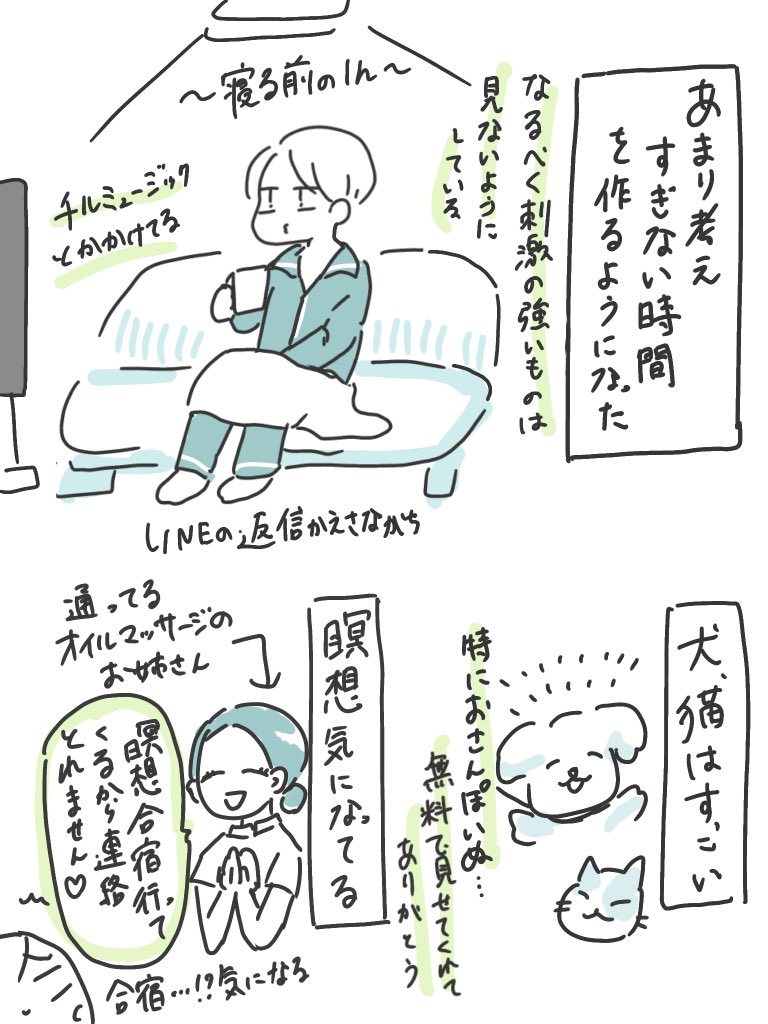 あまり考え
すぎない時間
を作るようになった
〜寝る前の1h〜
なるべく刺激の強いものは
見ないように
している
チルミュージック
とかかけてる
LINEの返信かえさながち
犬、猫はすごい
特におさんぽいぬ…
無料で見せてくれて
ありがとう
瞑想気になってる
通ってる
オイルマッサージの
お姉さん
瞑想合宿行って
くるから連絡
とれません♡
合宿…!?気になる